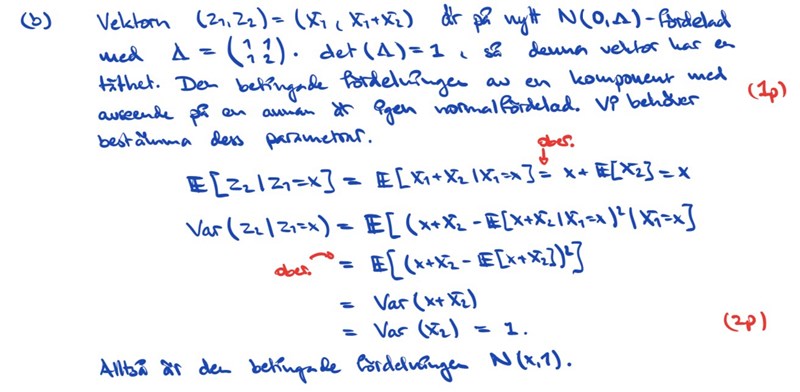 (b) Vektorn (Z₁, Z₂) = (X₁, X₁+X₂) är på nytt N(0,Λ)-fördelad
med Λ = (1 1; 1 2). det(Λ)=1, så denna vektor har en
täthet. Den betingade fördelningen av en komponent med
avseende på en annan är igen normalfördelad. Vi behöver (1p)
bestämma dess parametrar.
ober.
E[Z₂|Z₁=x] = E[X₁+X₂|X₁=x] = x + E[X₂] = x
Var(Z₂|Z₁=x) = E[(x+X₂ - E[x+X₂|X₁=x)²|X₁=x]
ober. = E[(x+X₂ - E[x+X₂])²]
= Var(x+X₂)
= Var(X₂) = 1. (2p)
Alltså är den betingade fördelningen N(x,1).